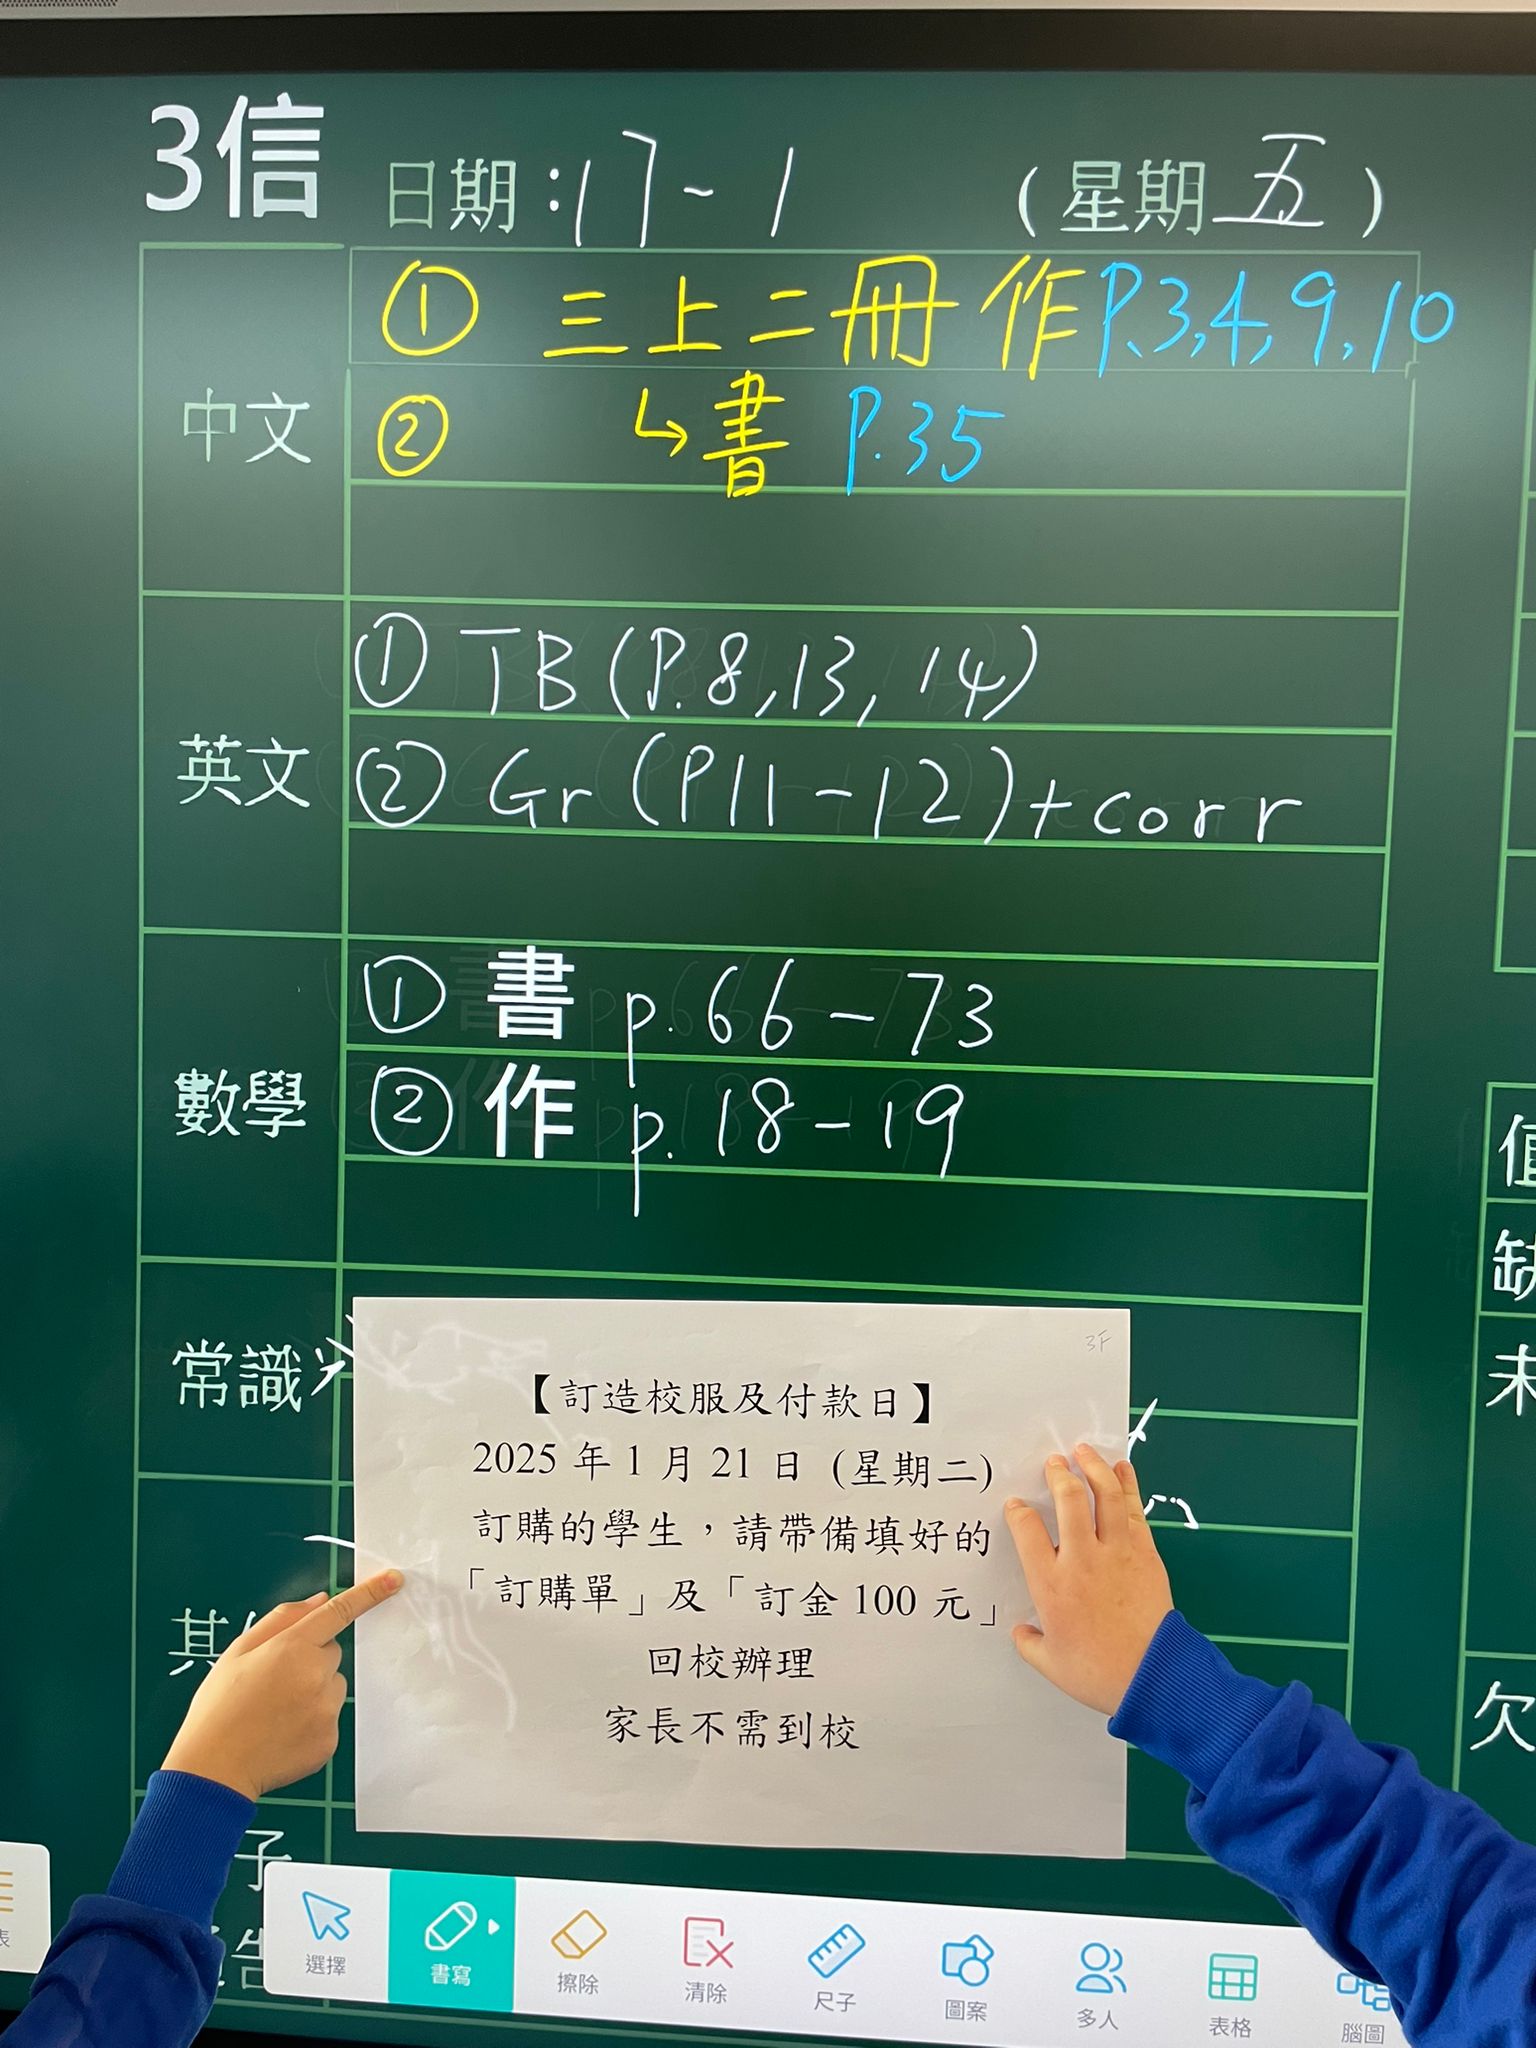 3信 日期：17-1 （星期五）
中文
① 三上二冊 作P.3,4,9,10
② ↳書 P.35
英文
① TB (P.8,13,14)
② Gr (P11-12)+corr
數學
① 書 p.66-73
② 作 p.18-19
常識
3F
【訂造校服及付款日】
2025 年 1 月 21 日 (星期二)
訂購的學生，請帶備填好的
「訂購單」及「訂金 100 元」
回校辦理
家長不需到校
其
子
告
值
缺
未
欠
表
選擇
書寫
擦除
清除
尺子
圖案
多人
表格
腦圖